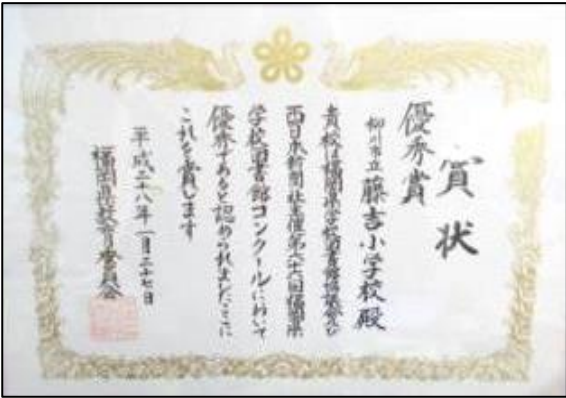 賞状
優秀賞
柳川市立 藤吉小学校殿
貴校は福岡県学校図書館協議会及び
西日本新聞社主催第 回福岡県
学校図書館コンクールにおいて
優秀であると認められましたここに
これを賞します
平成二十八年一月二十七日
福岡県教育委員会